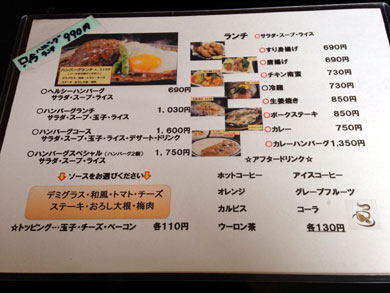 990円
ハンバーグランチ
○ヘルシーハンバーグ 690円
サラダ・スープ・ライス
○ハンバーグランチ 1,030円
サラダ・スープ・玉子・ライス
○ハンバーグコース 1,600円
サラダ・スープ・玉子・ライス・デザート・ドリンク
○ハンバーグスペシャル(ハンバーグ2個) 1,750円
サラダ・スープ・ライス
↓ソースをお選びください↓
デミグラス・和風・トマト・チーズ
ステーキ・おろし大根・梅肉
☆トッピング…玉子・チーズ・ベーコン 各110円
ランチ ○サラダ・スープ・ライス
○すり身揚げ 690円
○唐揚げ 690円
○チキン南蛮 730円
○冷麺 730円
○生姜焼き 850円
○ポークステーキ 850円
○カレー 750円
○カレーハンバーグ 1,350円
☆アフタードリンク☆
ホットコーヒー アイスコーヒー
オレンジ グレープフルーツ
カルピス コーラ
ウーロン茶 各130円